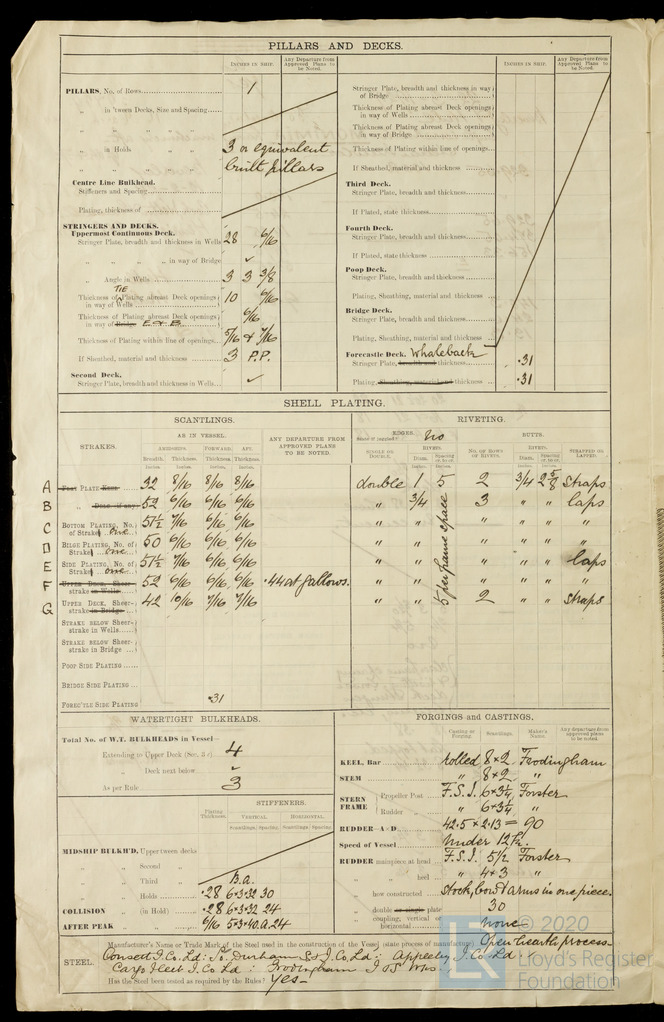 PILLARS AND DECKS.
INCHES IN SHIP. Any Departure from Approved Plans to be Noted.
PILLARS, No. of Rows 1
„ in 'tween Decks, Size and Spacing
„ „ „
„ in Holds „ 3 or equivalent
„ „ built pillars
Centre Line Bulkhead.
Stiffeners and Spacing
Plating, thickness of
STRINGERS AND DECKS.
Uppermost Continuous Deck.
Stringer Plate, breadth and thickness in Wells 28 6/16
„ „ „ in way of Bridge ✓
„ Angle in Wells 3 3 3/8
TIE
Thickness of Plating abreast Deck openings in way of Wells 10 6/16
Thickness of Plating abreast Deck openings in way of Bridge E & B 6/16
Thickness of Plating within line of openings 5/16 & 7/16
If Sheathed, material and thickness 3 P.P.
Second Deck.
Stringer Plate, breadth and thickness in Wells ✓
INCHES IN SHIP. Any Departure from Approved Plans to be Noted.
Stringer Plate, breadth and thickness in way of Bridge
Thickness of Plating abreast Deck openings in way of Wells
Thickness of Plating abreast Deck openings in way of Bridge
Thickness of Plating within line of openings
If Sheathed, material and thickness
Third Deck.
Stringer Plate, breadth and thickness
If Plated, state thickness
Fourth Deck.
Stringer Plate, breadth and thickness
If Plated, state thickness
Poop Deck.
Stringer Plate, breadth and thickness
Plating, Sheathing, material and thickness
Bridge Deck.
Stringer Plate, breadth and thickness
Plating, Sheathing, material and thickness
Forecastle Deck. Whaleback
Stringer Plate, breadth and thickness .31
Plating, Sheathing, material and thickness .31
SHELL PLATING.
SCANTLINGS. RIVETING.
STRAKES. AS IN VESSEL. ANY DEPARTURE FROM APPROVED PLANS TO BE NOTED. EDGES. no BUTTS.
AMIDSHIPS FORWARD. AFT. SINGLE OR DOUBLE. RIVETS NO. OF ROWS OF RIVETS. RIVETS. STRAPPED OR LAPPED.
Breadth. Thickness. Thickness. Thickness. Diam. Spacing cr. to cr. Diam. Spacing cr. to cr.
A PLATE 32 8/16 8/16 8/16 double 1 5 2 3/4 2 5/8 straps
B „ 52 6/16 6/16 6/16 „ 3/4 3 „ „ laps
C BOTTOM PLATING, No. of Strakes one 51½ 7/16 6/16 6/16 „ „ „ „ „ „
D BILGE PLATING, No. of Strakes one 50 6/16 6/16 6/16 „ „ „ „ „ „
E SIDE PLATING, No. of Strakes one 51½ 7/16 6/16 6/16 „ „ „ „ „ laps
F UPPER DECK, Sheerstrake in Wells 52 6/16 6/16 6/16 .44 at gallows. „ „ „ „ „ „
G UPPER DECK, Sheerstrake in Bridge 42 10/16 7/16 7/16 „ „ 2 „ „ straps
5 per frame space
STRAKE BELOW Sheerstrake in Wells
STRAKE BELOW Sheerstrake in Bridge
POOP SIDE PLATING
BRIDGE SIDE PLATING
FOREC'TLE SIDE PLATING .31
WATERTIGHT BULKHEADS.
Total No. of W.T. BULKHEADS in Vessel—
Extending to Upper Deck 4
„ Deck next below ✓
As per Rule 3
STIFFENERS.
Plating Thickness VERTICAL. HORIZONTAL.
Scantlings Spacing Scantlings Spacing
MIDSHIP BULKH'D, Upper tween decks
„ Second „
„ Third „ B.a.
„ Holds .28 6×3×.32 30
COLLISION „ (in Hold) .28 6×3×.32 24
AFTER PEAK „ „ 6/16 5×3×.40.a. 24
FORGINGS and CASTINGS.
Casting or Forging. Scantlings. Maker's Name. Any departure from approved plans to be noted.
KEEL, Bar rolled 8×2 Frodingham
STEM „ 8×2 „
STERN FRAME Propeller Post F.S.I. 6×3¼ Forster
Rudder „ „ 6×3¼ „
RUDDER—A×D 42.5×2.13 = 90
Speed of Vessel Under 12 K.
RUDDER mainpiece at head F.S.I. 5½ Forster
„ „ heel „ 4×3 „
„ how constructed stock, bow & arms in one piece.
„ double or single plate 30
„ coupling, vertical or horizontal none
STEEL. Manufacturer's Name or Trade Mark of the Steel used in the construction of the Vessel (state process of manufacture). Open hearth process
Consett I. Co. Ld: So. Durham S & I. Co. Ld: Appleby I. Co. Ld:
Cargo Fleet I. Co Ld: Frodingham I & S Wks.
Has the Steel been tested as required by the Rules? Yes
© 2020
Lloyd's Register
Foundation